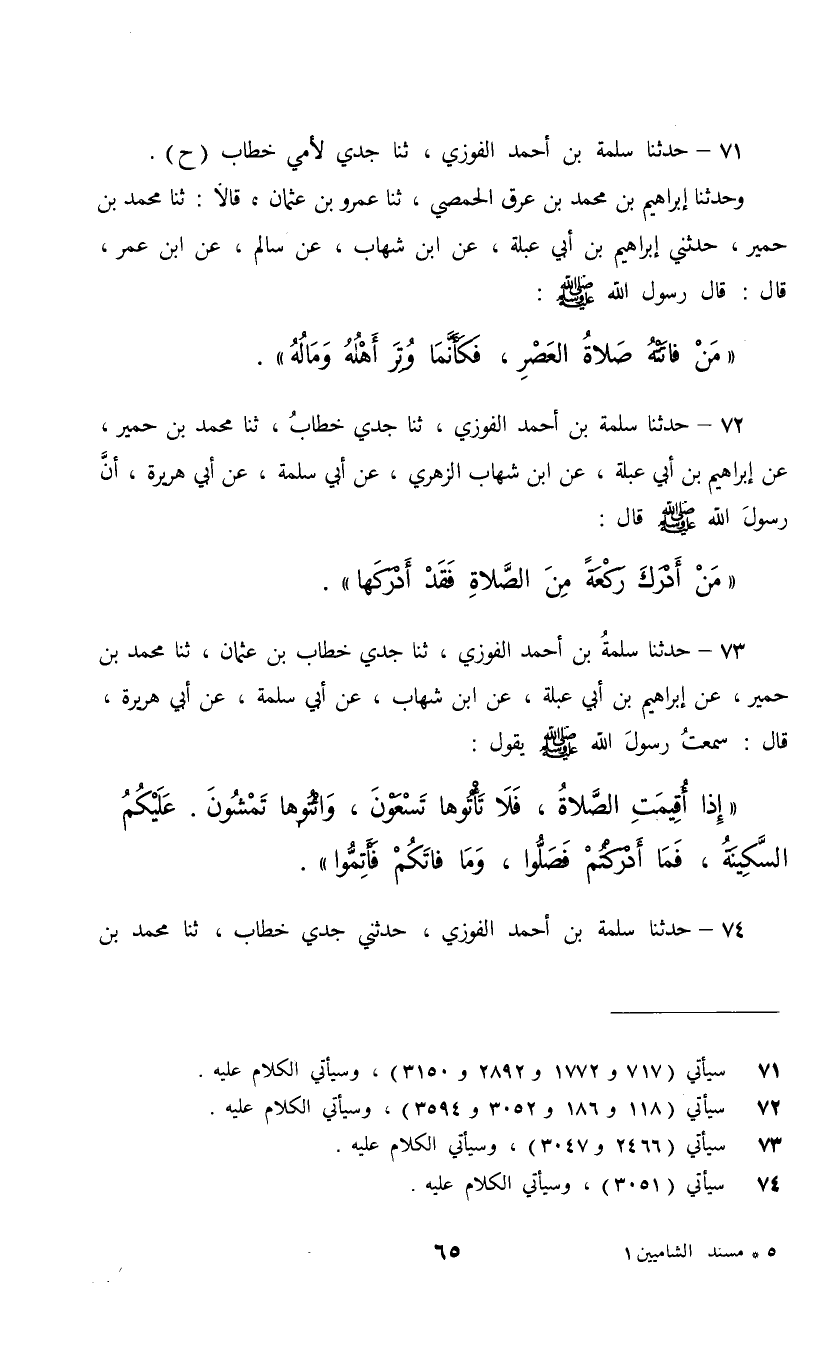 ٧١ – حدثنا سلمة بن أحمد الفوزي ، ثنا جدي لأمي خطاب (ح) .
وحدثنا إبراهيم بن محمد بن عرق الحمصي ، ثنا عمرو بن عثمان ، قالا : ثنا محمد بن
حمير ، حدثني إبراهيم بن أبي عبلة ، عن ابن شهاب ، عن سالم ، عن ابن عمر ،
قال : قال رسول الله ﷺ :
« مَنْ فاتَتْهُ صَلاةُ العَصْرِ ، فَكَأَنَّمَا وُتِرَ أَهْلُهُ وَمَالُهُ» .
٧٢ – حدثنا سلمة بن أحمد الفوزي ، ثنا جدي خطابُ ، ثنا محمد بن حمير ،
عن إبراهيم بن أبي عبلة ، عن ابن شهاب الزهري ، عن أبي سلمة ، عن أبي هريرة ، أنَّ
رسولَ الله ﷺ قال :
« مَنْ أَدْرَكَ رَكْعَةً مِنَ الصَّلاةِ فَقَدْ أَدْرَكَها» .
٧٣ – حدثنا سلمةُ بن أحمد الفوزي ، ثنا جدي خطاب بن عثمان ، ثنا محمد بن
حمير ، عن إبراهيم بن أبي عبلة ، عن ابن شهاب ، عن أبي سلمة ، عن أبي هريرة ،
قال : سمعتُ رسولَ الله ﷺ يقول :
« إِذا أُقِيمَتِ الصَّلاةُ ، فَلَا تَأْتُوها تَسْعَوْنَ ، وَائْتُوها تَمْشُونَ . عَلَيْكُمُ
السَّكِينَةُ ، فَمَا أَدْرَكْتُمْ فَصَلُّوا ، وَمَا فاتَكُمْ فَأَتِمُّوا» .
٧٤ – حدثنا سلمة بن أحمد الفوزي ، حدثني جدي خطاب ، ثنا محمد بن
٧١ سيأتي (٧١٧ و ١٧٧٢ و ٢٨٩٢ و ٣١٥٠) ، وسيأتي الكلام عليه .
٧٢ سيأتي (١١٨ و ١٨٦ و ٣٠٥٢ و ٣٥٩٤) ، وسيأتي الكلام عليه .
٧٣ سيأتي (٢٤٦٦ و ٣٠٤٧) ، وسيأتي الكلام عليه .
٧٤ سيأتي (٣٠٥١) ، وسيأتي الكلام عليه .
٥ * مسند الشاميين ١ ٦٥